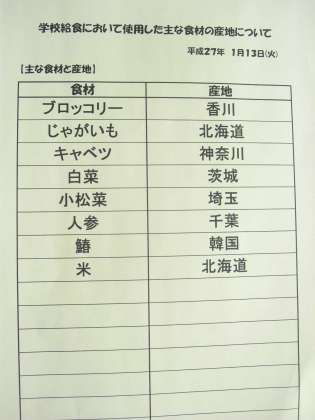 学校給食において使用した主な食材の産地について
平成27年 1月13日(火)
【主な食材と産地】
食材 産地
ブロッコリー 香川
じゃがいも 北海道
キャベツ 神奈川
白菜 茨城
小松菜 埼玉
人参 千葉
鰆 韓国
米 北海道